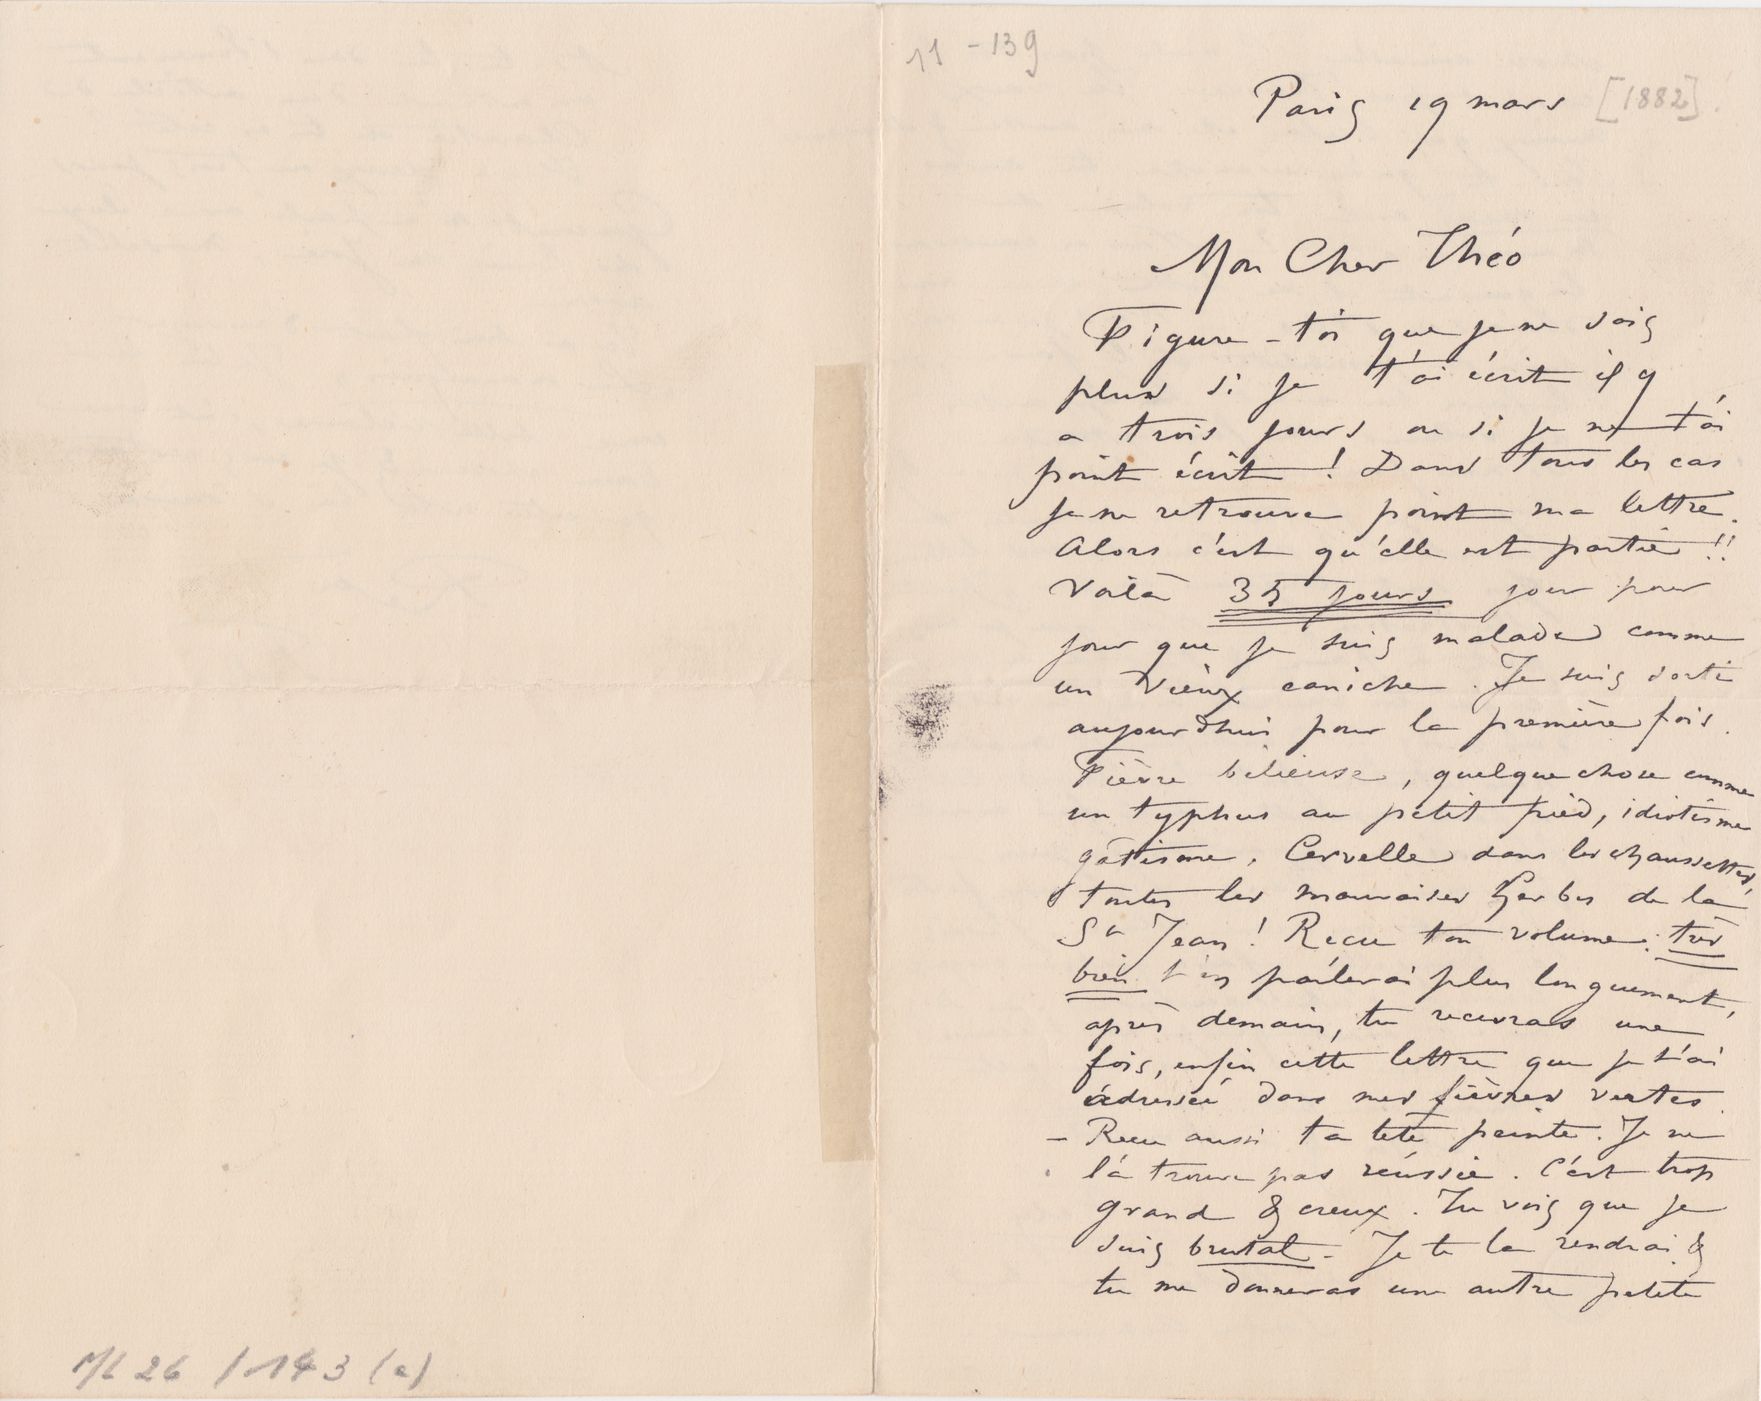 11 - 139
Paris 19 mars [1882].
Mon Cher Théo
Figure-toi que je ne sais
plus si je t'ai écrit il y
a trois jours ou si je ne t'ai
point écrit ! Dans tous les cas
je ne retrouve point ma lettre.
Alors c'est qu'elle est partie !!
Voilà 35 jours jour pour
jour que je suis malade comme
un vieux caniche. Je suis sorti
aujourd'hui pour la première fois.
Fièvre bilieuse, quelque chose comme
un typhus au petit pied, idiotisme
gâtisme, Cervelle dans les chaussettes,
toutes les mauvaises herbes de la
St Jean ! Reçu ton volume : très
bien t'en parlerai plus longuement,
après demain, tu recevras une
fois, enfin cette lettre que je t'ai
adressée dans mes fièvres vertes.
- Reçu aussi ta tête peinte. Je ne
la trouve pas réussie. C'est trop
grand & creux. Tu vois que je
suis brutal - Je te la rendrai &
tu me donneras une autre petite
ML 26 / 143 (a)